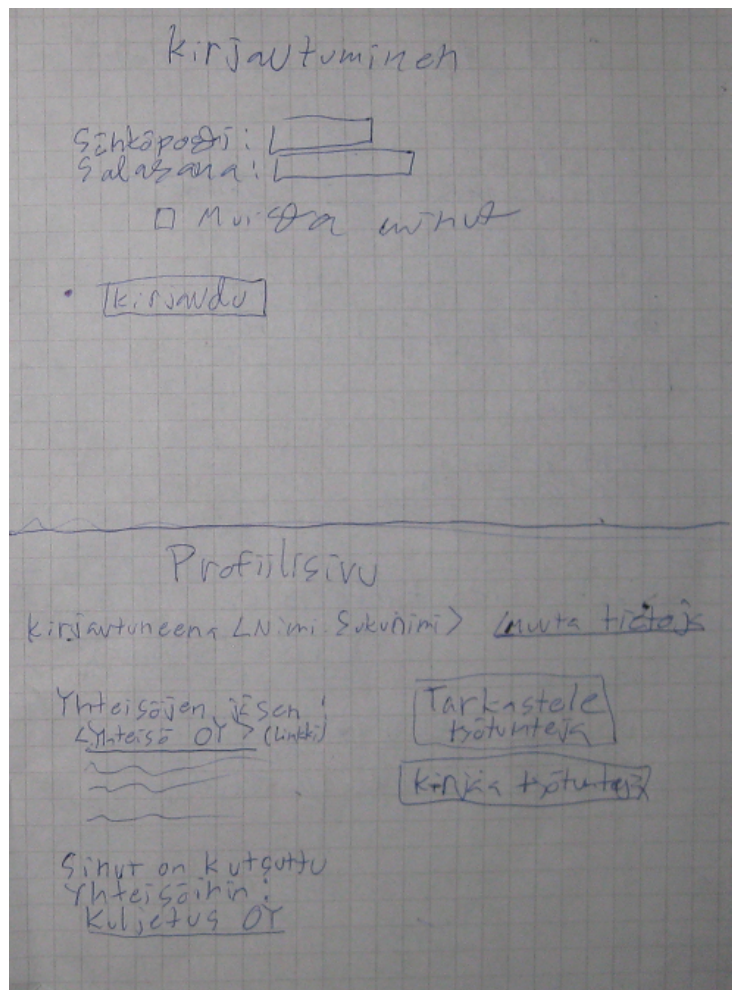 Kirjautuminen
Sähköposti:
Salasana:
Muista minut
Kirjaudu
Profiilisivu
Kirjautuneena <Nimi Sukunimi> Muuta tietoja
Yhteisöjen jäsen:
<Yhteisö OY> (linkki)
Tarkastele
työtunteja
Kirjaa työtunteja
Sinut on kutsuttu
Yhteisöihin:
Kuljetus OY